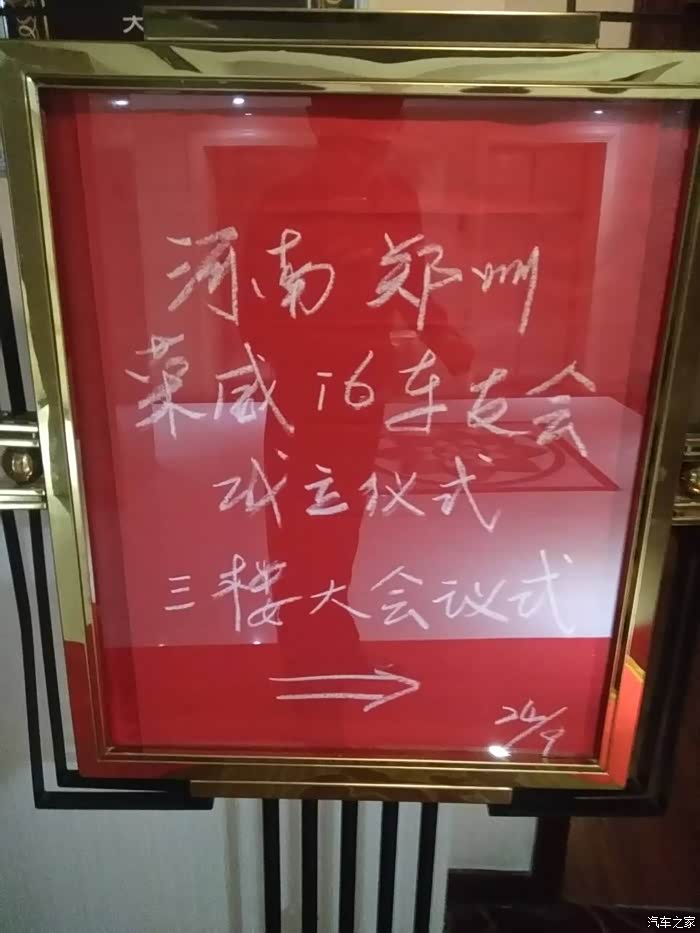 大
河南 郑州
荣威i6车友会
成立仪式
三楼大会议式
24/9
汽车之家